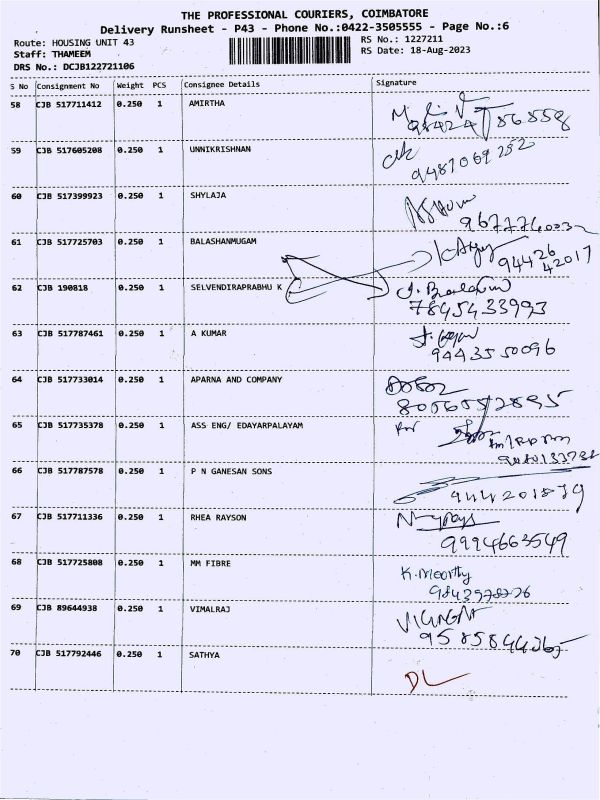 THE PROFESSIONAL COURIERS, COIMBATORE
Delivery Runsheet - P43 - Phone No.:0422-3505555 - Page No.:6
Route: HOUSING UNIT 43
RS No.: 1227211
Staff: THAMEEM
RS Date: 18-Aug-2023
DRS No.: DCJB122721106
S No Consignment No Weight PCS Consignee Details Signature
58 CJB 517711412 0.250 1 AMIRTHA
59 CJB 517605208 0.250 1 UNNIKRISHNAN
9487069252
60 CJB 517399923 0.250 1 SHYLAJA
61 CJB 517725703 0.250 1 BALASHANMUGAM
94426
42017
62 CJB 190818 0.250 1 SELVENDIRAPRABHU K
7845433993
63 CJB 517787461 0.250 1 A KUMAR
9443550096
64 CJB 517733014 0.250 1 APARNA AND COMPANY
8056052895
65 CJB 517735378 0.250 1 ASS ENG/ EDAYARPALAYAM
66 CJB 517787578 0.250 1 P N GANESAN SONS
67 CJB 517711336 0.250 1 RHEA RAYSON
9994663549
68 CJB 517725808 0.250 1 MM FIBRE
K. Moorthy
69 CJB 89644938 0.250 1 VIMALRAJ
70 CJB 517792446 0.250 1 SATHYA
DL